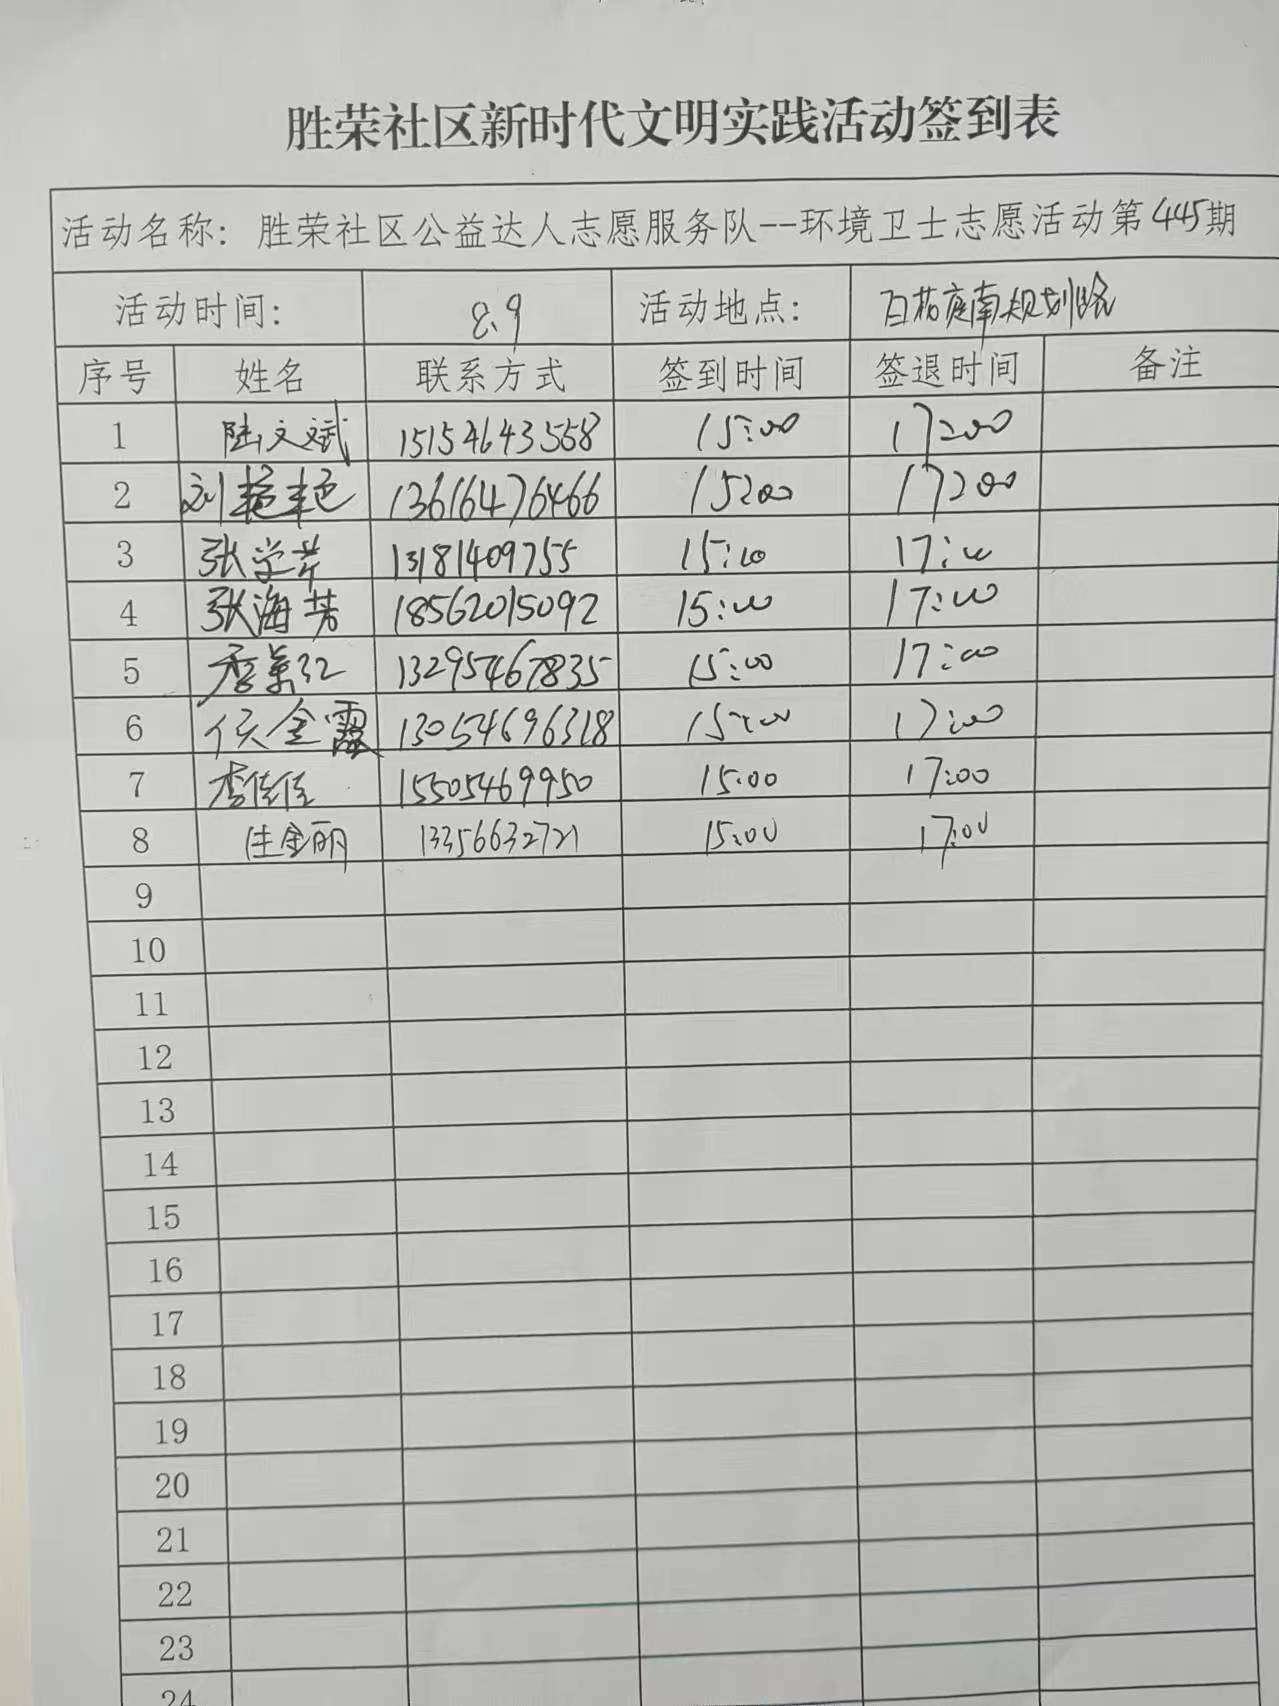 胜荣社区新时代文明实践活动签到表
活动名称：胜荣社区公益达人志愿服务队--环境卫士志愿活动第445期
活动时间： 8.9 活动地点： 百花庭南规划路
序号 姓名 联系方式 签到时间 签退时间 备注
1 陆文斌 15154643558 15:00 17:00
2 刘艳艳 13616476466 15:00 17:00
3 张学芹 13181409755 15:00 17:00
4 张海芳 18562015092 15:00 17:00
5 13295467835 15:00 17:00
6 侯金霞 13054696318 15:00 17:00
7 李佳佳 15505469950 15:00 17:00
8 金丽 13356632721 15:00 17:00
9
10
11
12
13
14
15
16
17
18
19
20
21
22
23
24